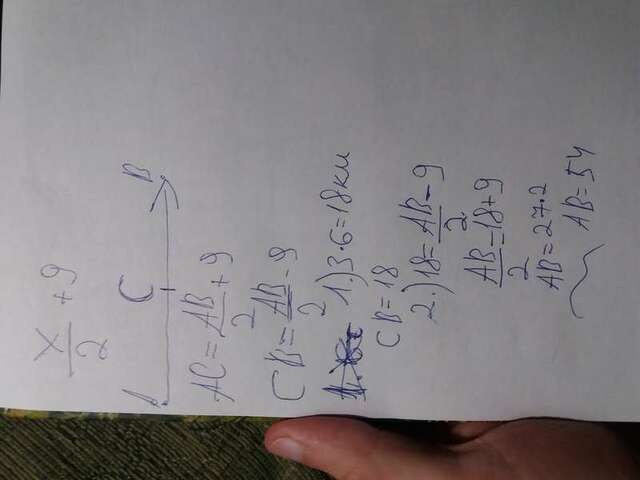 x/2 + 9
A C B
AC = AB/2 + 9
CB = AB/2 - 9
1.) 3·6=18км
CB = 18
2.) 18 = AB/2 - 9
AB/2 = 18+9
AB = 27·2
AB = 54